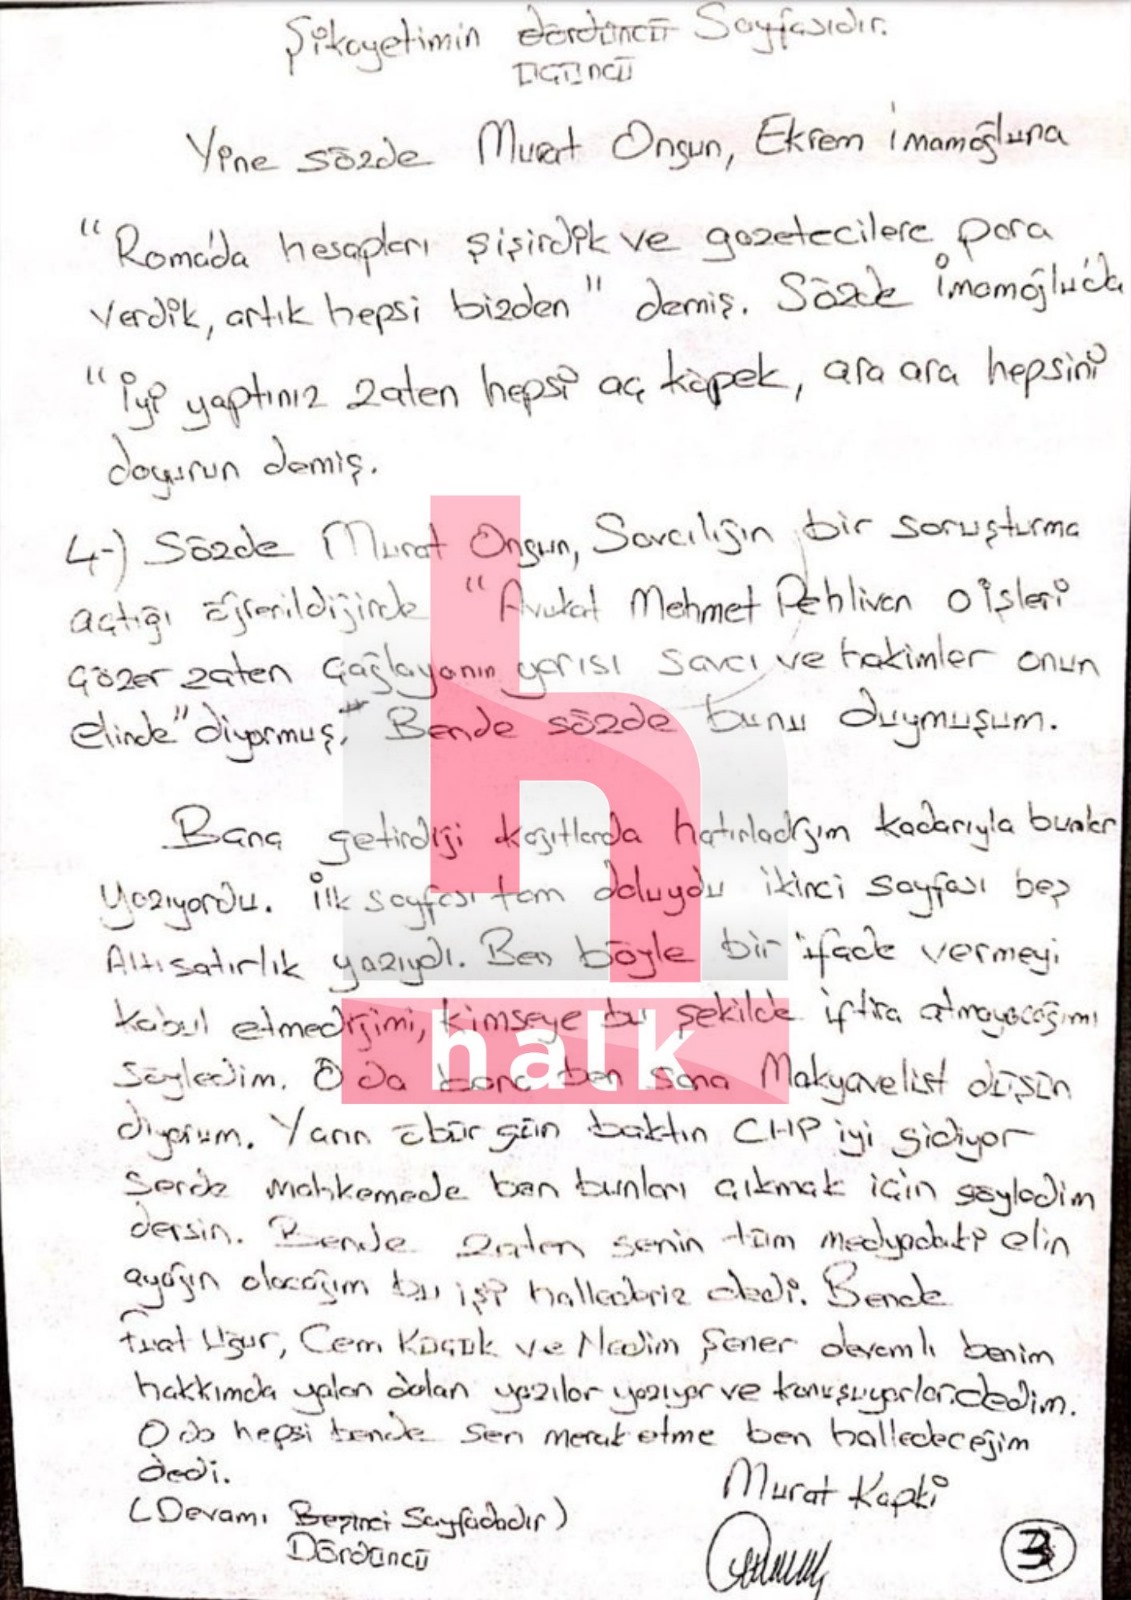 Şikayetimin dördüncü Sayfasıdır.
üçüncü
Yine sözde Murat Ongun, Ekrem İmamoğluna
"Roma'da hesapları şişirdik ve gazetecilere para
verdik, artık hepsi bizden" demiş. Sözde İmamoğlu'da
"İyi yaptınız zaten hepsi aç köpek, ara ara hepsini
doyurun demiş.
4-) Sözde Murat Ongun, Savcılığın bir soruşturma
açtığı öğrenildiğinde "Avukat Mehmet Pehlivan o işleri
çözer zaten Çağlayanın yarısı savcı ve hakimler onun
elinde" diyormuş." Bende sözde bunu duymuşum.
Bana getirdiği kağıtlarda hatırladığım kadarıyla bunlar
yazıyordu. İlk sayfası tam doluydu ikinci sayfası beş
Altı satırlık yazıydı. Ben böyle bir ifade vermeyi
kabul etmediğimi, kimseye bu şekilde iftira atmayacağımı
söyledim. O da bana ben sana Makyavelist düşün
diyorum. Yarın öbür gün baktın CHP iyi gidiyor
Sende mahkemede ben bunları çıkmak için söyledim
dersin. Bende zaten senin tüm medyadaki elin
ayağın olacağım bu işi hallederiz dedi. Bende
Fuat Uğur, Cem Küçük ve Nedim Şener devamlı benim
hakkımda yalan dolan yazılar yazıyor ve konuşuyorlar. dedim.
O da hepsi bende sen merak etme ben halledeceğim
dedi.
Murat Kapki
(Devamı Beşinci Sayfadadır)
Dördüncü
3
halk